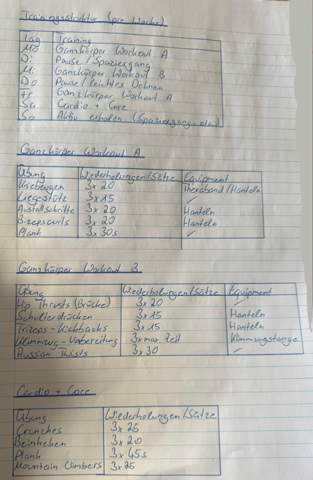 Trainingsstruktur (pro Woche)
Tag Training
Mo Ganzkörper Workout A
Di Pause/Spaziergang
Mi Ganzkörper Workout B
Do Pause/leichtes Dehnen
Fr Ganzkörper Workout A
Sa Cardio + Core
So Aktiv erholen (Spaziergang etc.)
Ganzkörper Workout A
Übung Wiederholungen/Sätze Equipment
Kniebeugen 3x20 Theraband/Hanteln
Liegestütz 3x15 /
Ausfallschritte 3x20 Hanteln
Bizepscurls 3x20 Hanteln
Plank 3x30s /
Ganzkörper Workout B
Übung Wiederholungen/Sätze Equipment
Hip Thrusts (Brücke) 3x20 /
Schulterdrücken 3x15 Hanteln
Trizeps-Kickbacks 3x15 Hanteln
Klimmzug-Vorbereitung 3xmax Zeit Klimmzugstange
Russian Twists 3x30 /
Cardio + Core
Übung Wiederholungen/Sätze
Crunches 3x25
Beinheben 3x20
Plank 3x45s
Mountain Climbers 3x25